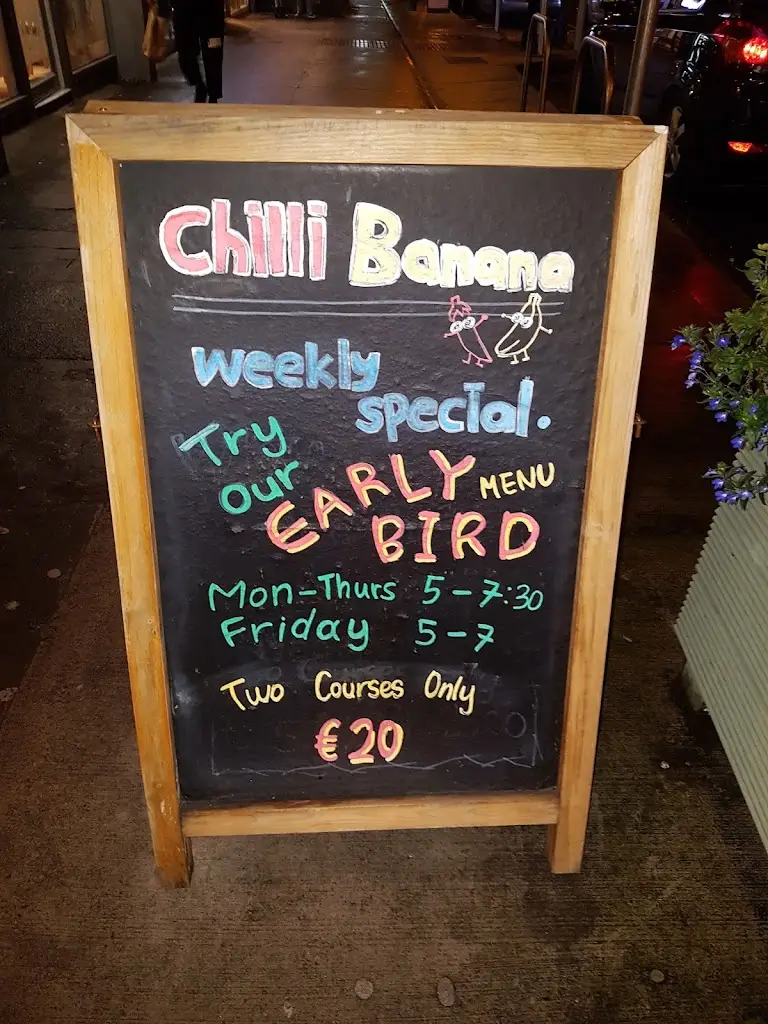 Chilli Banana
weekly
special.
Try
our
EARLY MENU
BIRD
Mon-Thurs 5-7:30
Friday 5-7
Two Courses Only
€20